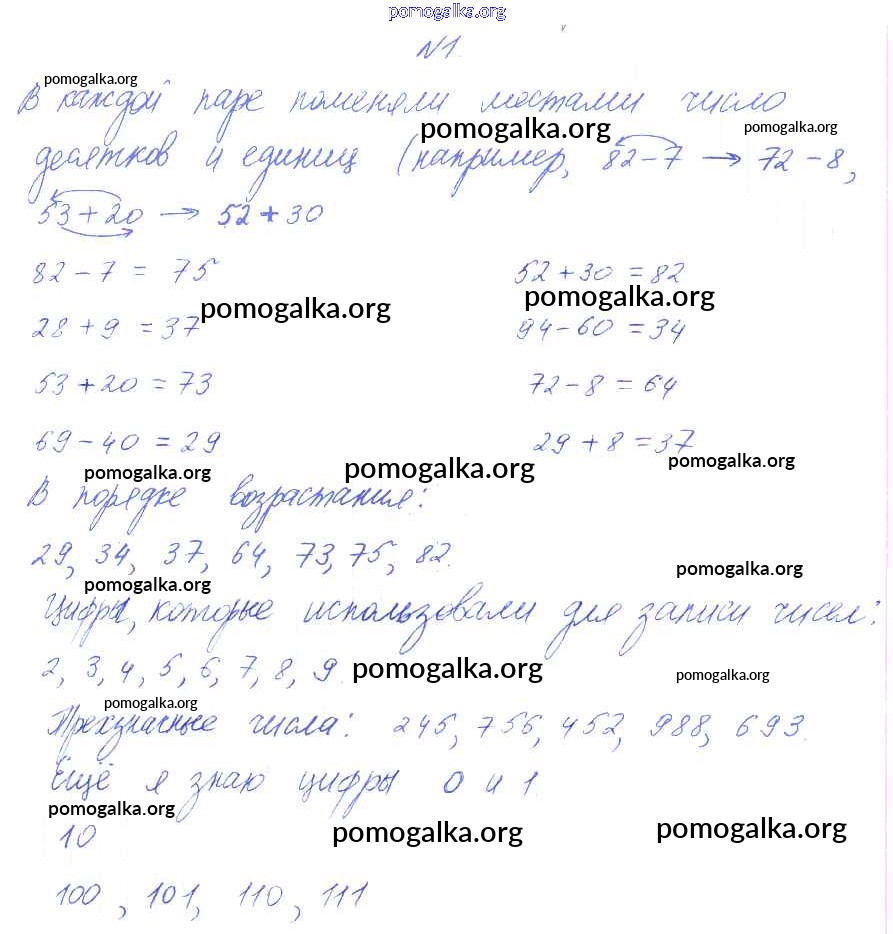 pomogalka.org
№1.
pomogalka.org
В каждой паре поменяли местами число
pomogalka.org pomogalka.org
десятков и единиц (например, 82-7 → 72-8,
53+20 → 52+30
82-7 = 75 52+30 = 82
pomogalka.org pomogalka.org
28+9 = 37 94-60 = 34
53+20 = 73 72-8 = 64
69-40 = 29 29+8 = 37
pomogalka.org pomogalka.org pomogalka.org
В порядке возрастания:
29, 34, 37, 64, 73, 75, 82.
pomogalka.org pomogalka.org
Цифры, которые использовали для записи чисел:
2, 3, 4, 5, 6, 7, 8, 9.
pomogalka.org pomogalka.org
pomogalka.org
Трехзначные числа: 245, 756, 452, 988, 693.
Ещё я знаю цифры 0 и 1.
pomogalka.org
10
pomogalka.org pomogalka.org
100, 101, 110, 111